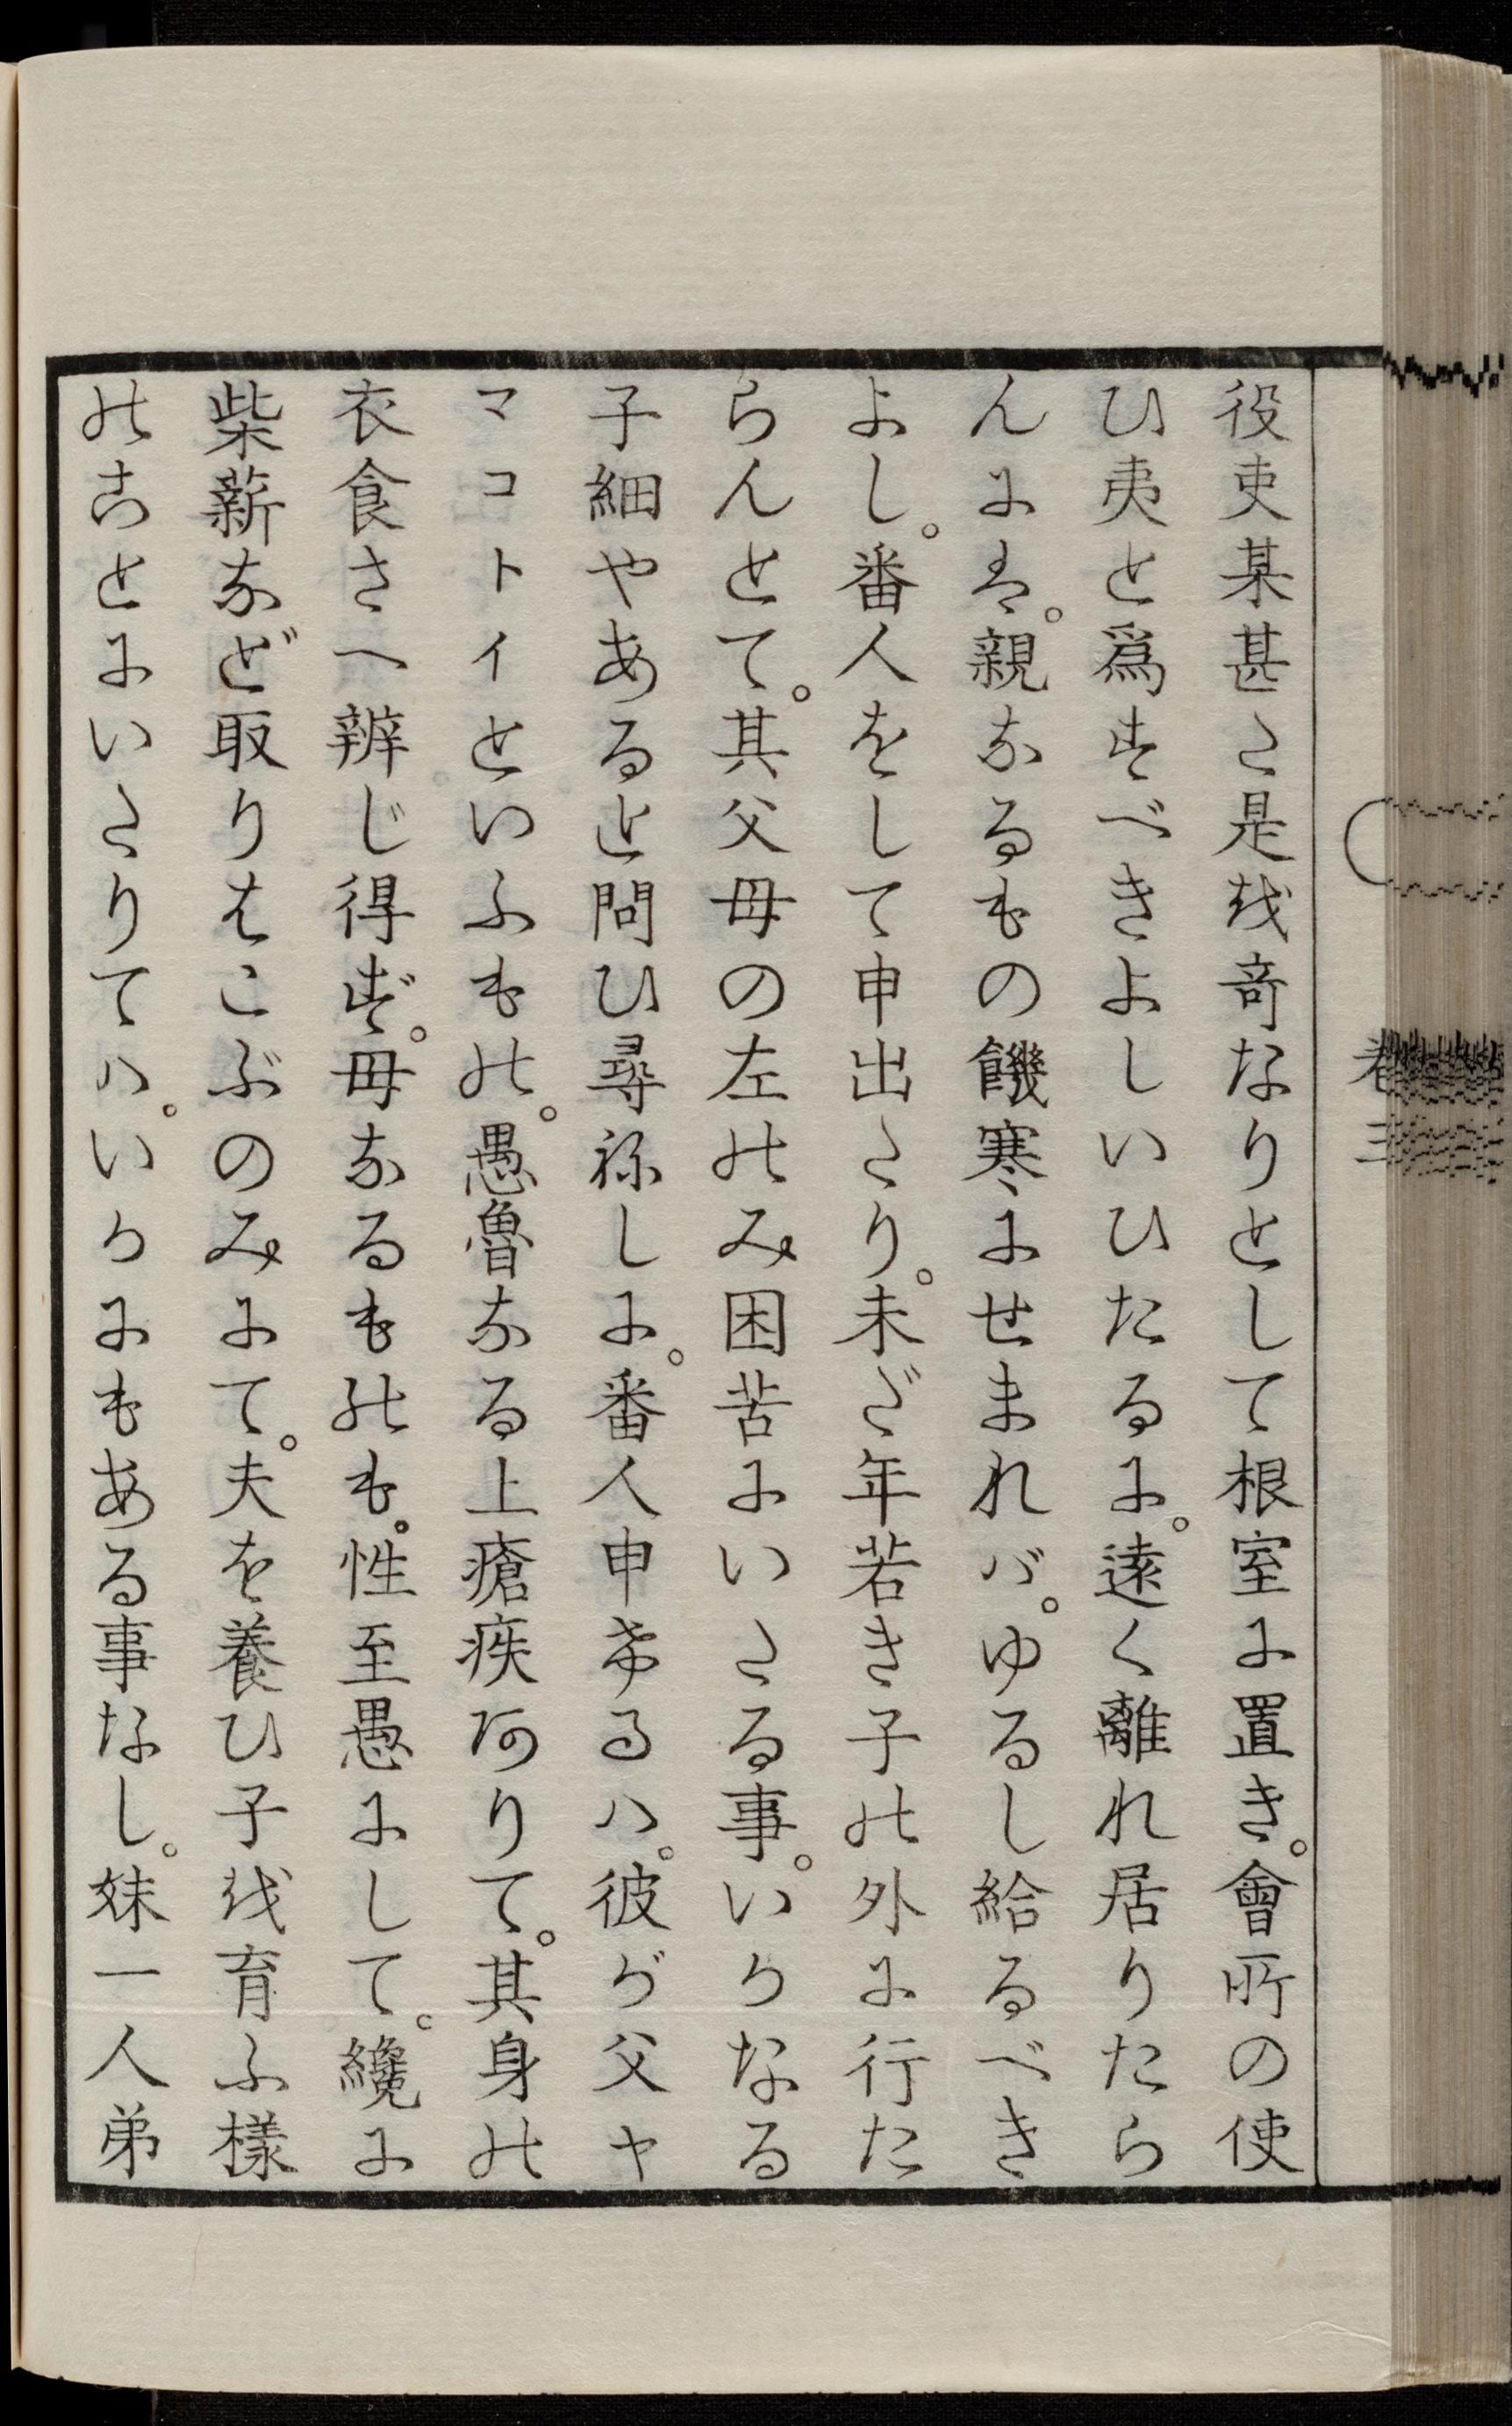 役吏某甚た是を竒なりとして根室に置き。會所の使
ひ夷と爲すべきよしいひたるに。遠く離れ居りたら
んには。親なるもの饑寒にせまれバ。ゆるし給るべき
よし。番人をして申出たり。未だ年若き子の外に行た
らんとて。其父母の左のみ困苦にいたる事。いかなる
子細やあると問ひ尋ねしに。番人申けるハ。彼が父ヤ
マコトイといふもの。愚魯なる上瘡疾ありて。其身の
衣食さへ辨じ得ず。母なるものも。性至愚にして。纔に
柴薪など取りはこぶのみにて。夫を養ひ子を育ふ樣
のことにいたりてハ。いかにもある事なし。妹一人弟
巻三